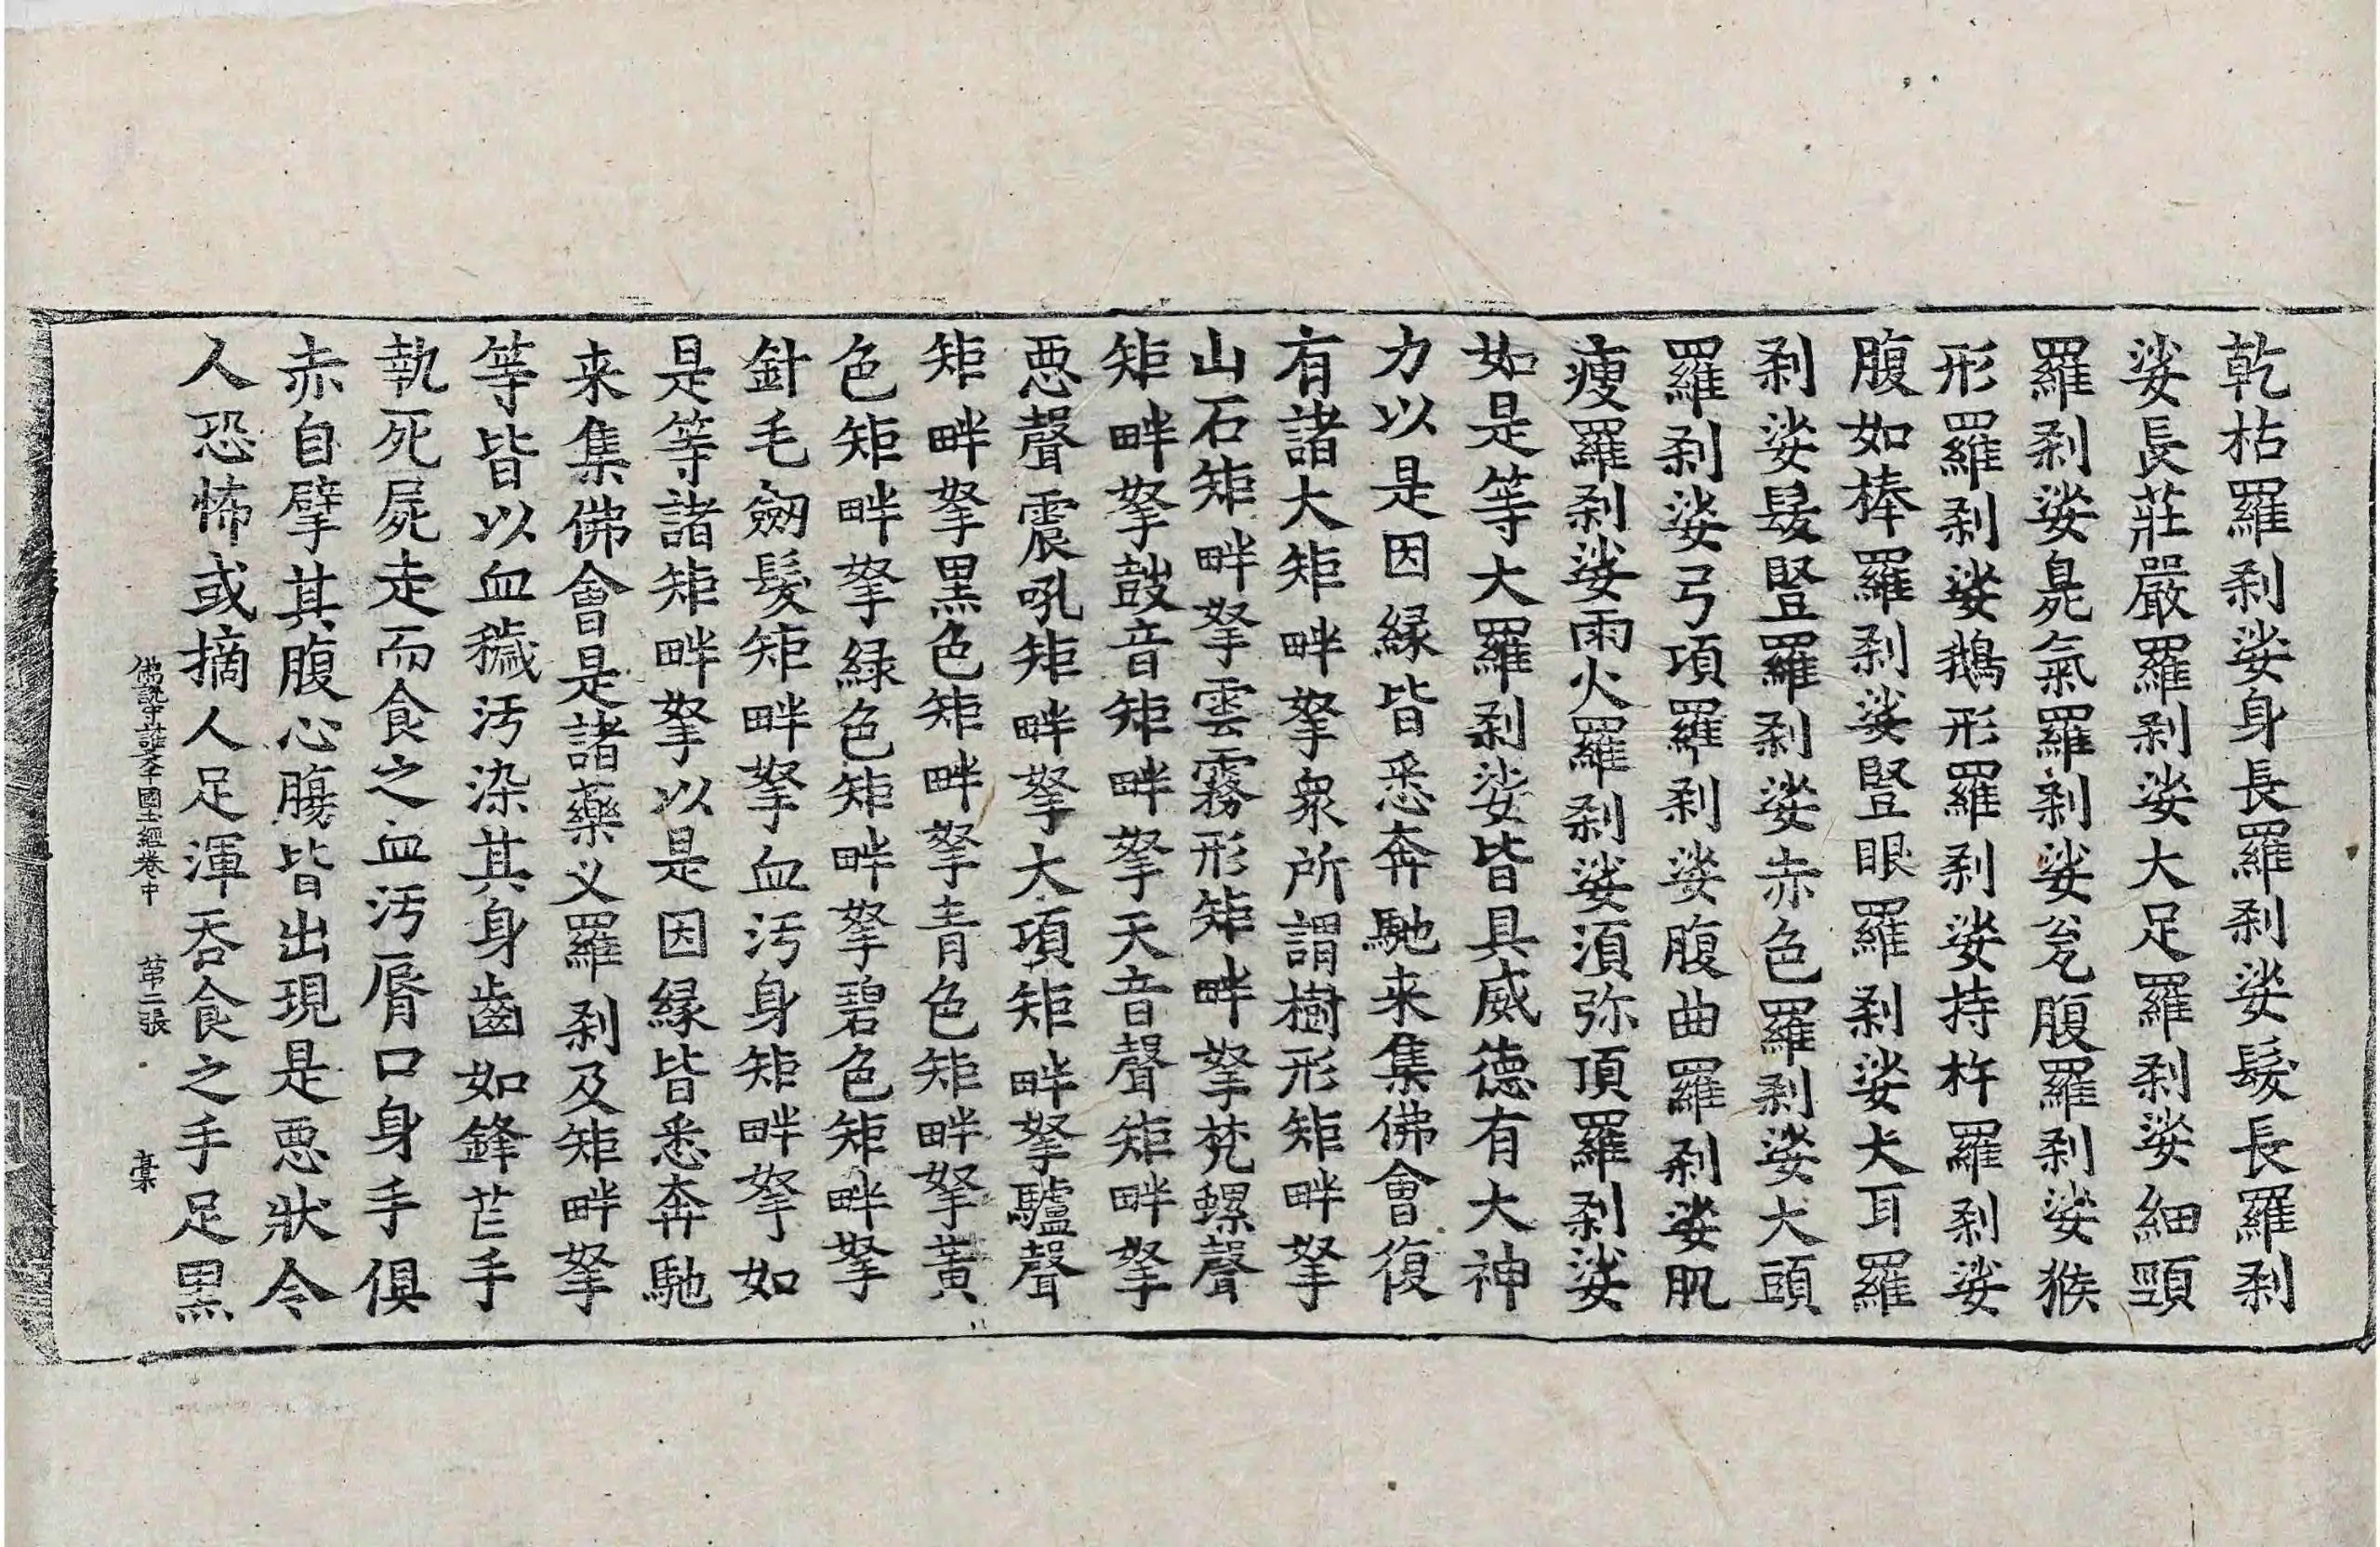 乾枯羅刹娑身長羅刹娑髮長羅刹
娑長莊嚴羅刹娑大足羅刹娑細頸
羅刹娑臭氣羅刹娑瓮腹羅刹娑猴
形羅刹娑鵝形羅刹娑持杵羅刹娑
腹如棒羅刹娑竪眼羅刹娑犬耳羅
刹娑髮竪羅刹娑赤色羅刹娑大頭
羅刹娑弓項羅刹娑腹曲羅刹娑肌
瘦羅刹娑雨火羅刹娑湏弥頂羅刹娑
如是等大羅刹娑皆具威德有大神
力以是因緣皆悉奔馳来集佛會復
有諸大矩畔拏衆所謂樹形矩畔拏
山石矩畔拏雲霧形矩畔拏梵螺聲
矩畔拏鼓音矩畔拏天音聲矩畔拏
惡聲震吼矩畔拏大項矩畔拏驢聲
矩畔拏黑色矩畔拏青色矩畔拏黃
色矩畔拏綠色矩畔拏碧色矩畔拏
針毛劒髮矩畔拏血汚身矩畔拏如
是等諸矩畔拏以是因緣皆悉奔馳
来集佛會是諸藥义羅刹及矩畔拏
等皆以血穢汚染其身齒如鋒芒手
執死屍走而食之血汚脣口身手俱
赤自擘其腹心膓皆出現是惡狀令
人恐怖或摘人足渾吞食之手足黑
佛說守護大千國土經卷中 苐二張 槖